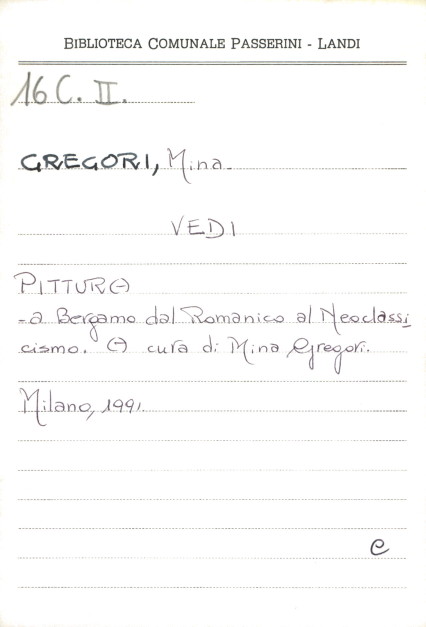 BIBLIOTECA COMUNALE PASSERINI - LANDI
16 C. II.
GREGORI, Mina
VEDI
PITTURA
- a Bergamo dal Romanico al Neoclassi
cismo. A cura di Mina Gregori.
Milano, 1991.
C